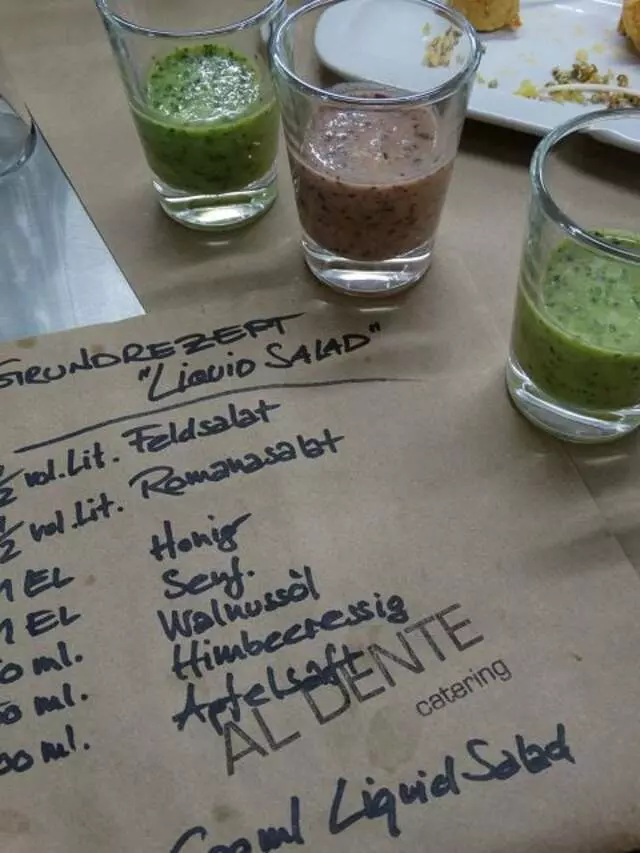 GRUNDREZEPT
"LIQUID SALAD"
1/2 vol. Lit. Feldsalat
1/2 vol. Lit. Romanasalat
1 EL Honig
1 EL Senf.
0 ml. Walnussöl
50 ml. Himbeeressig
00 ml. Apfelsaft
AL DENTE
catering
600ml Liquid Salad